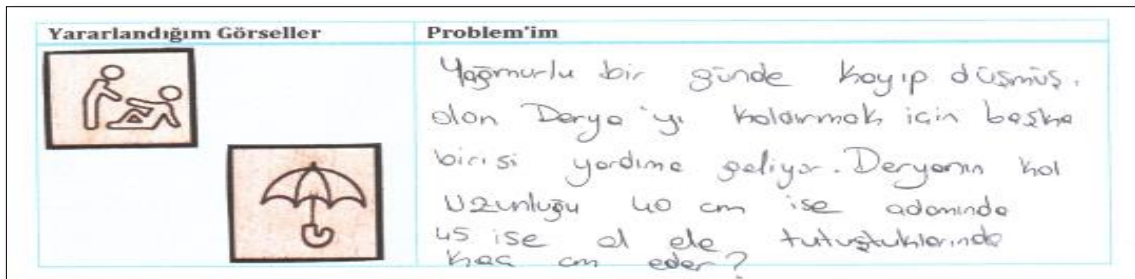 Yararlandığım Görseller
Problem'im
Yağmurlu bir günde kayıp düşmüş.
olan Derya'yı kaldırmak için başka
birisi yardıma geliyor. Deryanın kol
uzunluğu 40 cm ise adamında
45 ise el ele tutuştuklarında
kaç cm eder?